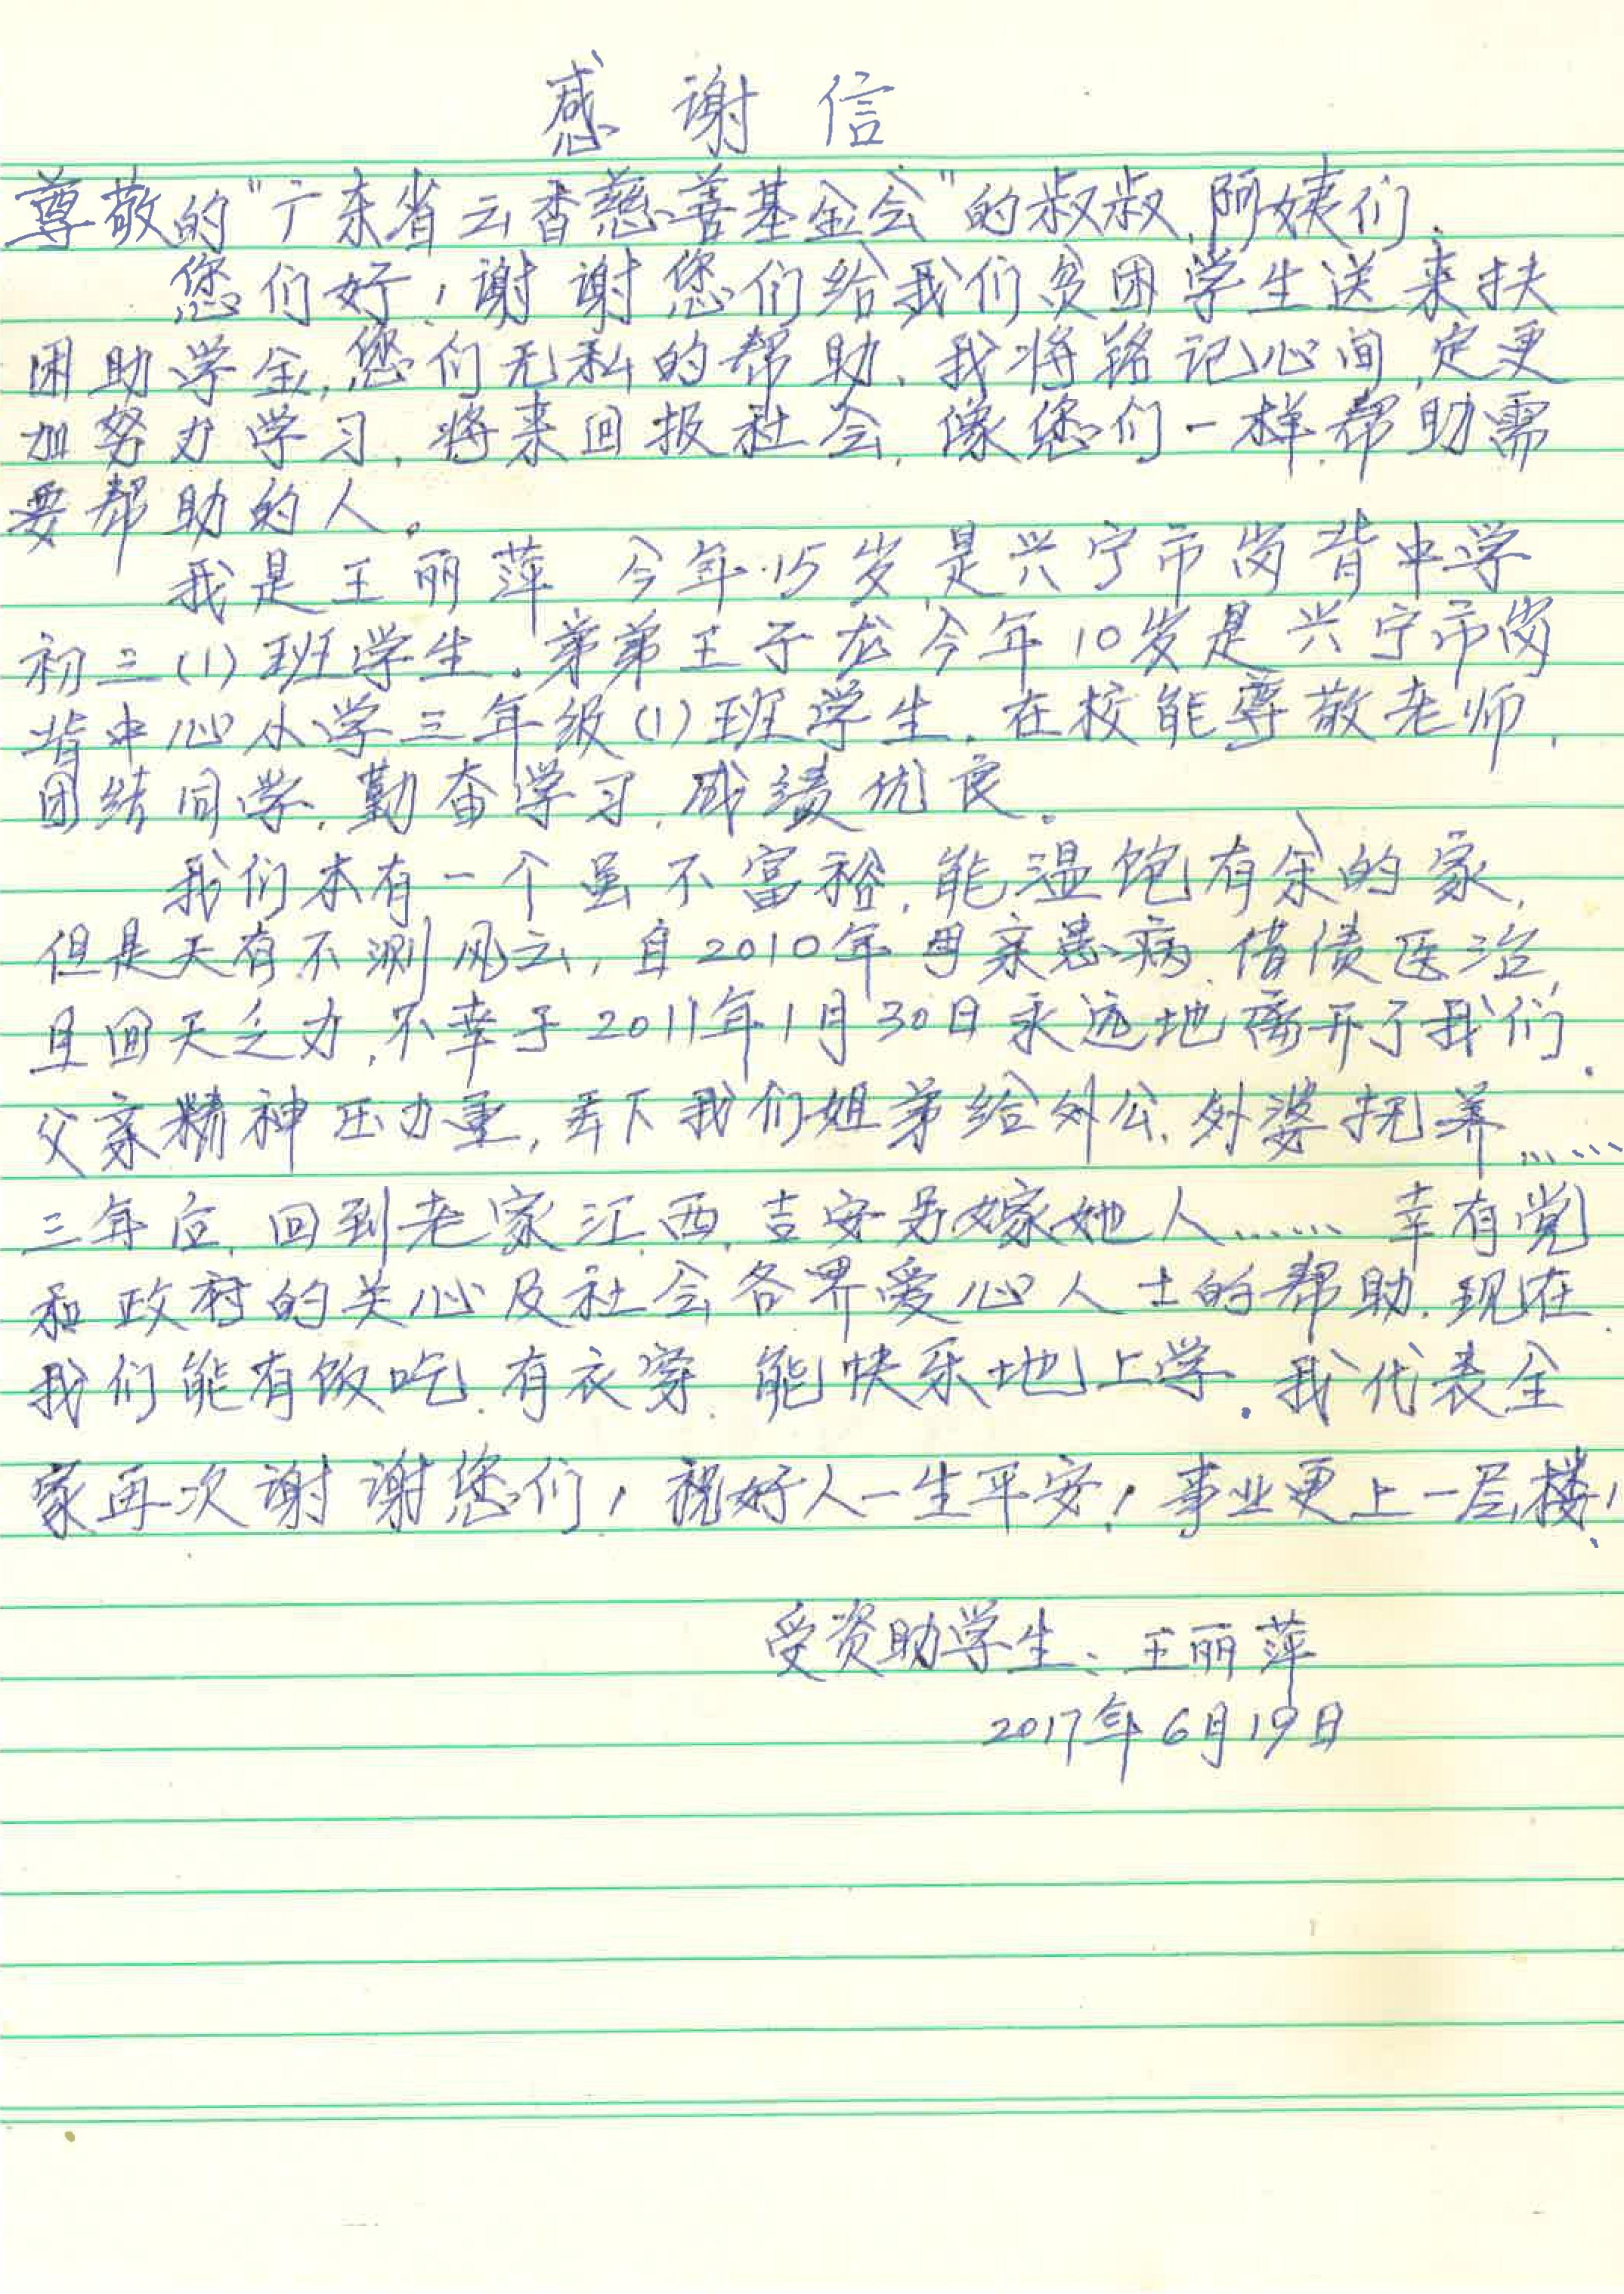 感谢信
尊敬的"广东省云香慈善基金会"的叔叔、阿姨们.
您们好!谢谢您们给我们贫困学生送来扶
困助学金,您们无私的帮助、我将铭记心间,定更
加努力学习,将来回报社会,像您们一样,帮助需
要帮助的人。
我是王丽萍 今年15岁,是兴宁市岗背中学
初三(1)班学生.弟弟王子龙今年10岁是兴宁市岗
背中心小学三年级(1)班学生.在校能尊敬老师,
团结同学,勤奋学习,成绩优良.
我们本有一个虽不富裕,能温饱有余的家,
但是天有不测风云,自2010年母亲患病,借债医治,
且回天乏力,不幸于2011年1月30日永远地离开了我们.
父亲精神压力重,丢下我们姐弟给外公、外婆抚养……
三年后,回到老家江西,吉安另嫁她人…… 幸有党
和政府的关心及社会各界爱心人士的帮助.现在
我们能有饭吃、有衣穿、能快乐地上学.我代表全
家再次谢谢您们!祝好人一生平安!事业更上一层楼!
受资助学生:王丽萍
2017年6月19日